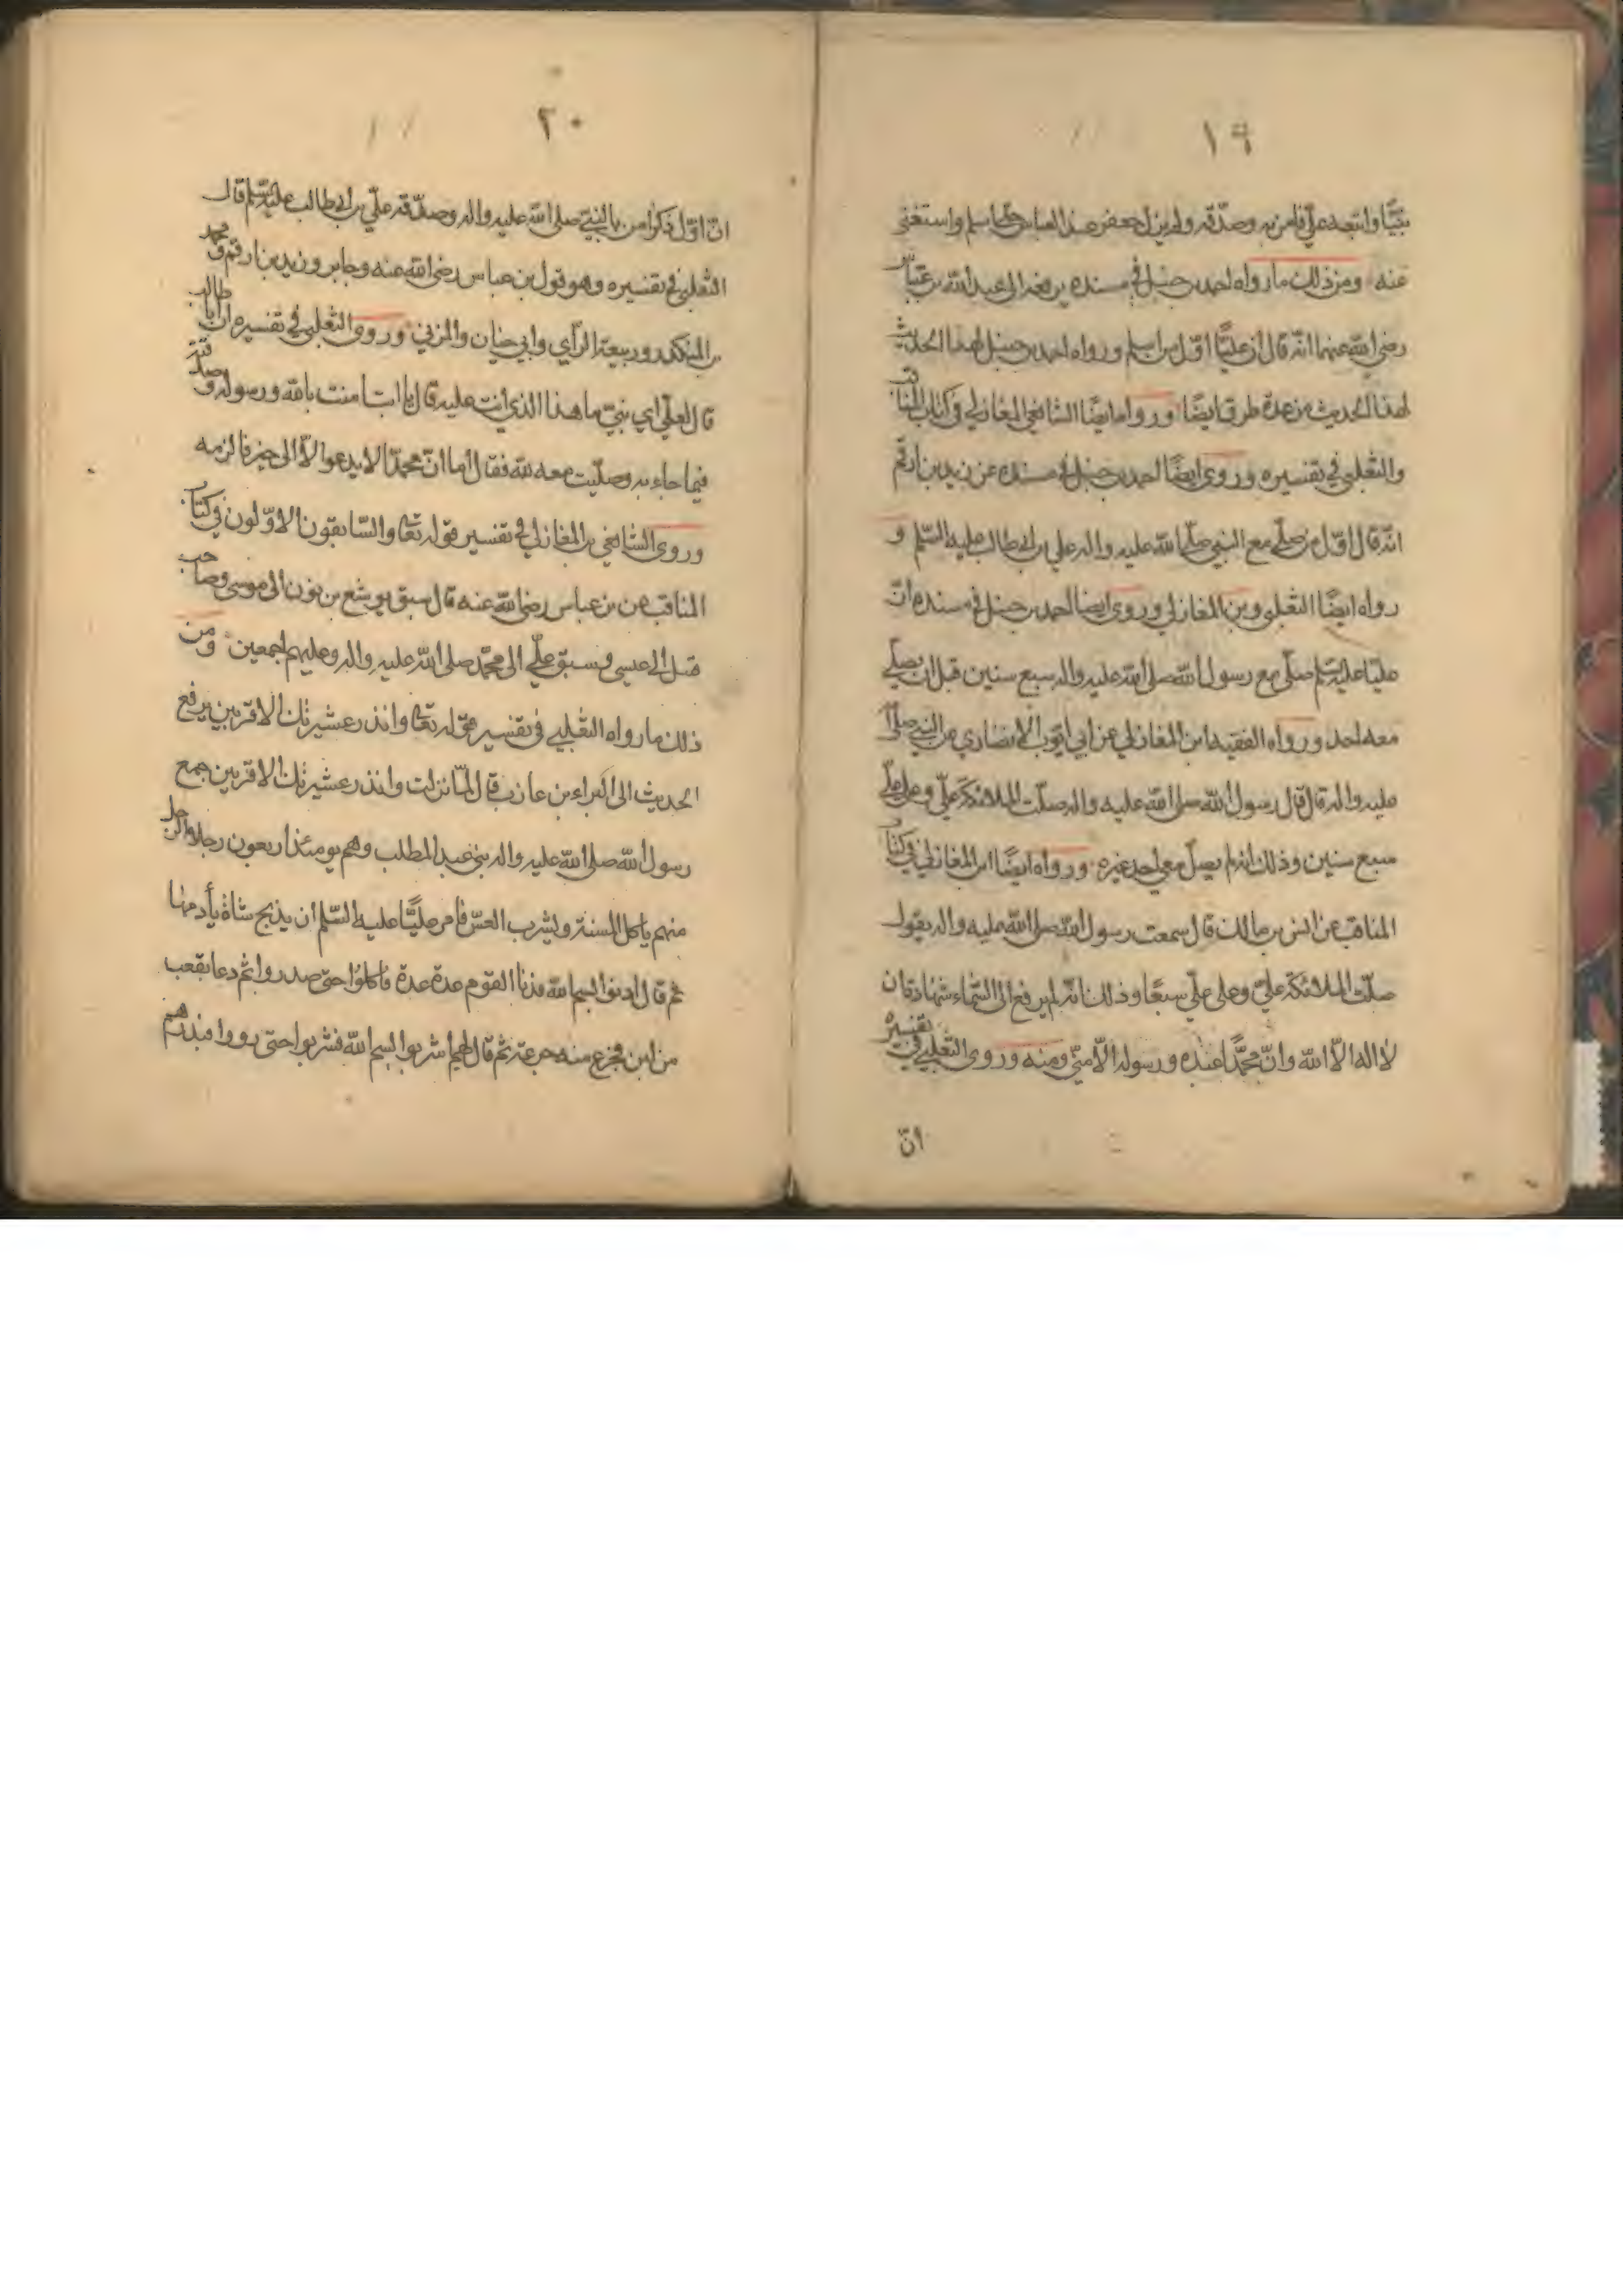 ١٩
نبيًّا واتبعه عليّ فامن به وصدّقه ولم يزل جعفر عند العباس حتى اسلم واستغنى
عنه ومن ذلك ما رواه احمد بن حنبل في مسنده يرفعه الى عبد الله بن عباس
رضي الله عنهما انّه قال ان عليًّا اوّل من اسلم ورواه احمد بن حنبل لهذا الحديث
لهذا الحديث من عدة طرق ايضًا ورواه ايضًا الشافعي المغازلي في كتاب المناقب
والثعلبي في تفسيره وروى ايضًا احمد بن حنبل في مسنده عن زيد بن ارقم
انّه قال اوّل من صلّى مع النبي صلّى الله عليه واله علي بن ابي طالب عليه السّلم و
رواه ايضًا الثعلبي وبن المغازلي وروى ايضا احمد بن حنبل في مسنده انّ
عليّا عليه السّلم صلّى مع رسول الله صلى الله عليه واله سبع سنين قبل ان يصلّي
معه احد ورواه الفقيه ابن المغازلي عن ابي ايّوب الانصاري عن النبي صلى الله
عليه واله قال قال رسول الله صلى الله عليه واله صلّت الملائكة عليّ وعلى عليّ
سبع سنين وذلك انه لم يصلّ معي احد غيره ورواه ايضًا ابن المغازلي في كتاب
المناقب عن انس بن مالك قال سمعت رسول الله صلى الله عليه واله يقول
صلّت الملائكة عليّ وعلى عليّ سبعًا وذلك انّه لم يرفع الى السّماء شهادة ان
لا اله الّا الله وانّ محمّدًا عبده ورسوله الّا منّي ومنه وروى الثعلبي في تفسيره
انّ
٢٠
انّ اوّل ذكر امن بالنبيّ صلى الله عليه واله وصدّقه عليّ بن ابي طالب عليه السّلم قال
الثعلبي في تفسيره وهو قول بن عباس رضي الله عنه وجابر وزيد بن ارقم ومحمد
بن المنكدر وربيعة الرأي وابي حيان والمزني وروى الثعلبي في تفسيره ان ابا طالب
قال لعليّ اي بنيّ ما هذا الذي انت عليه قال يا ابت امنت بالله ورسوله وصدقته
فيما جاء به وصلّيت معه لله فقال اما انّ محمدّا لا يدعو الّا الى خير فالزمه
وروى الشافعي بن المغازلي في تفسير قوله تعالى والسّابقون الاوّلون في كتاب
المناقب عن بن عباس رضي الله عنه قال سبق يوشع بن نون الى موسى وصاحب
قبل الى عيسى وسبق عليّ الى محمّد صلى الله عليه واله وعليهم اجمعين ومن
ذلك ما رواه الثعلبي في تفسير قوله تعالى وانذر عشيرتك الاقربين يرفع
الحديث الى البراء بن عازب قال لمّا نزلت وانذر عشيرتك الاقربين جمع
رسول الله صلى الله عليه واله بني عبد المطلب وهم يومئذ اربعون رجلا الرجل
منهم ياكل المسنة ويشرب العسّ فامر عليًّا عليه السّلم ان يذبح شاة يأدمها
ثم قال ادنوا بسم الله فدنا القوم عدة عدة فاكلوا حتى صدروا ثم دعا بقعب
من لبن فجرع منه جرعة ثم قال لهم اشربوا بسم الله فشربوا حتى رووا فبدرهم